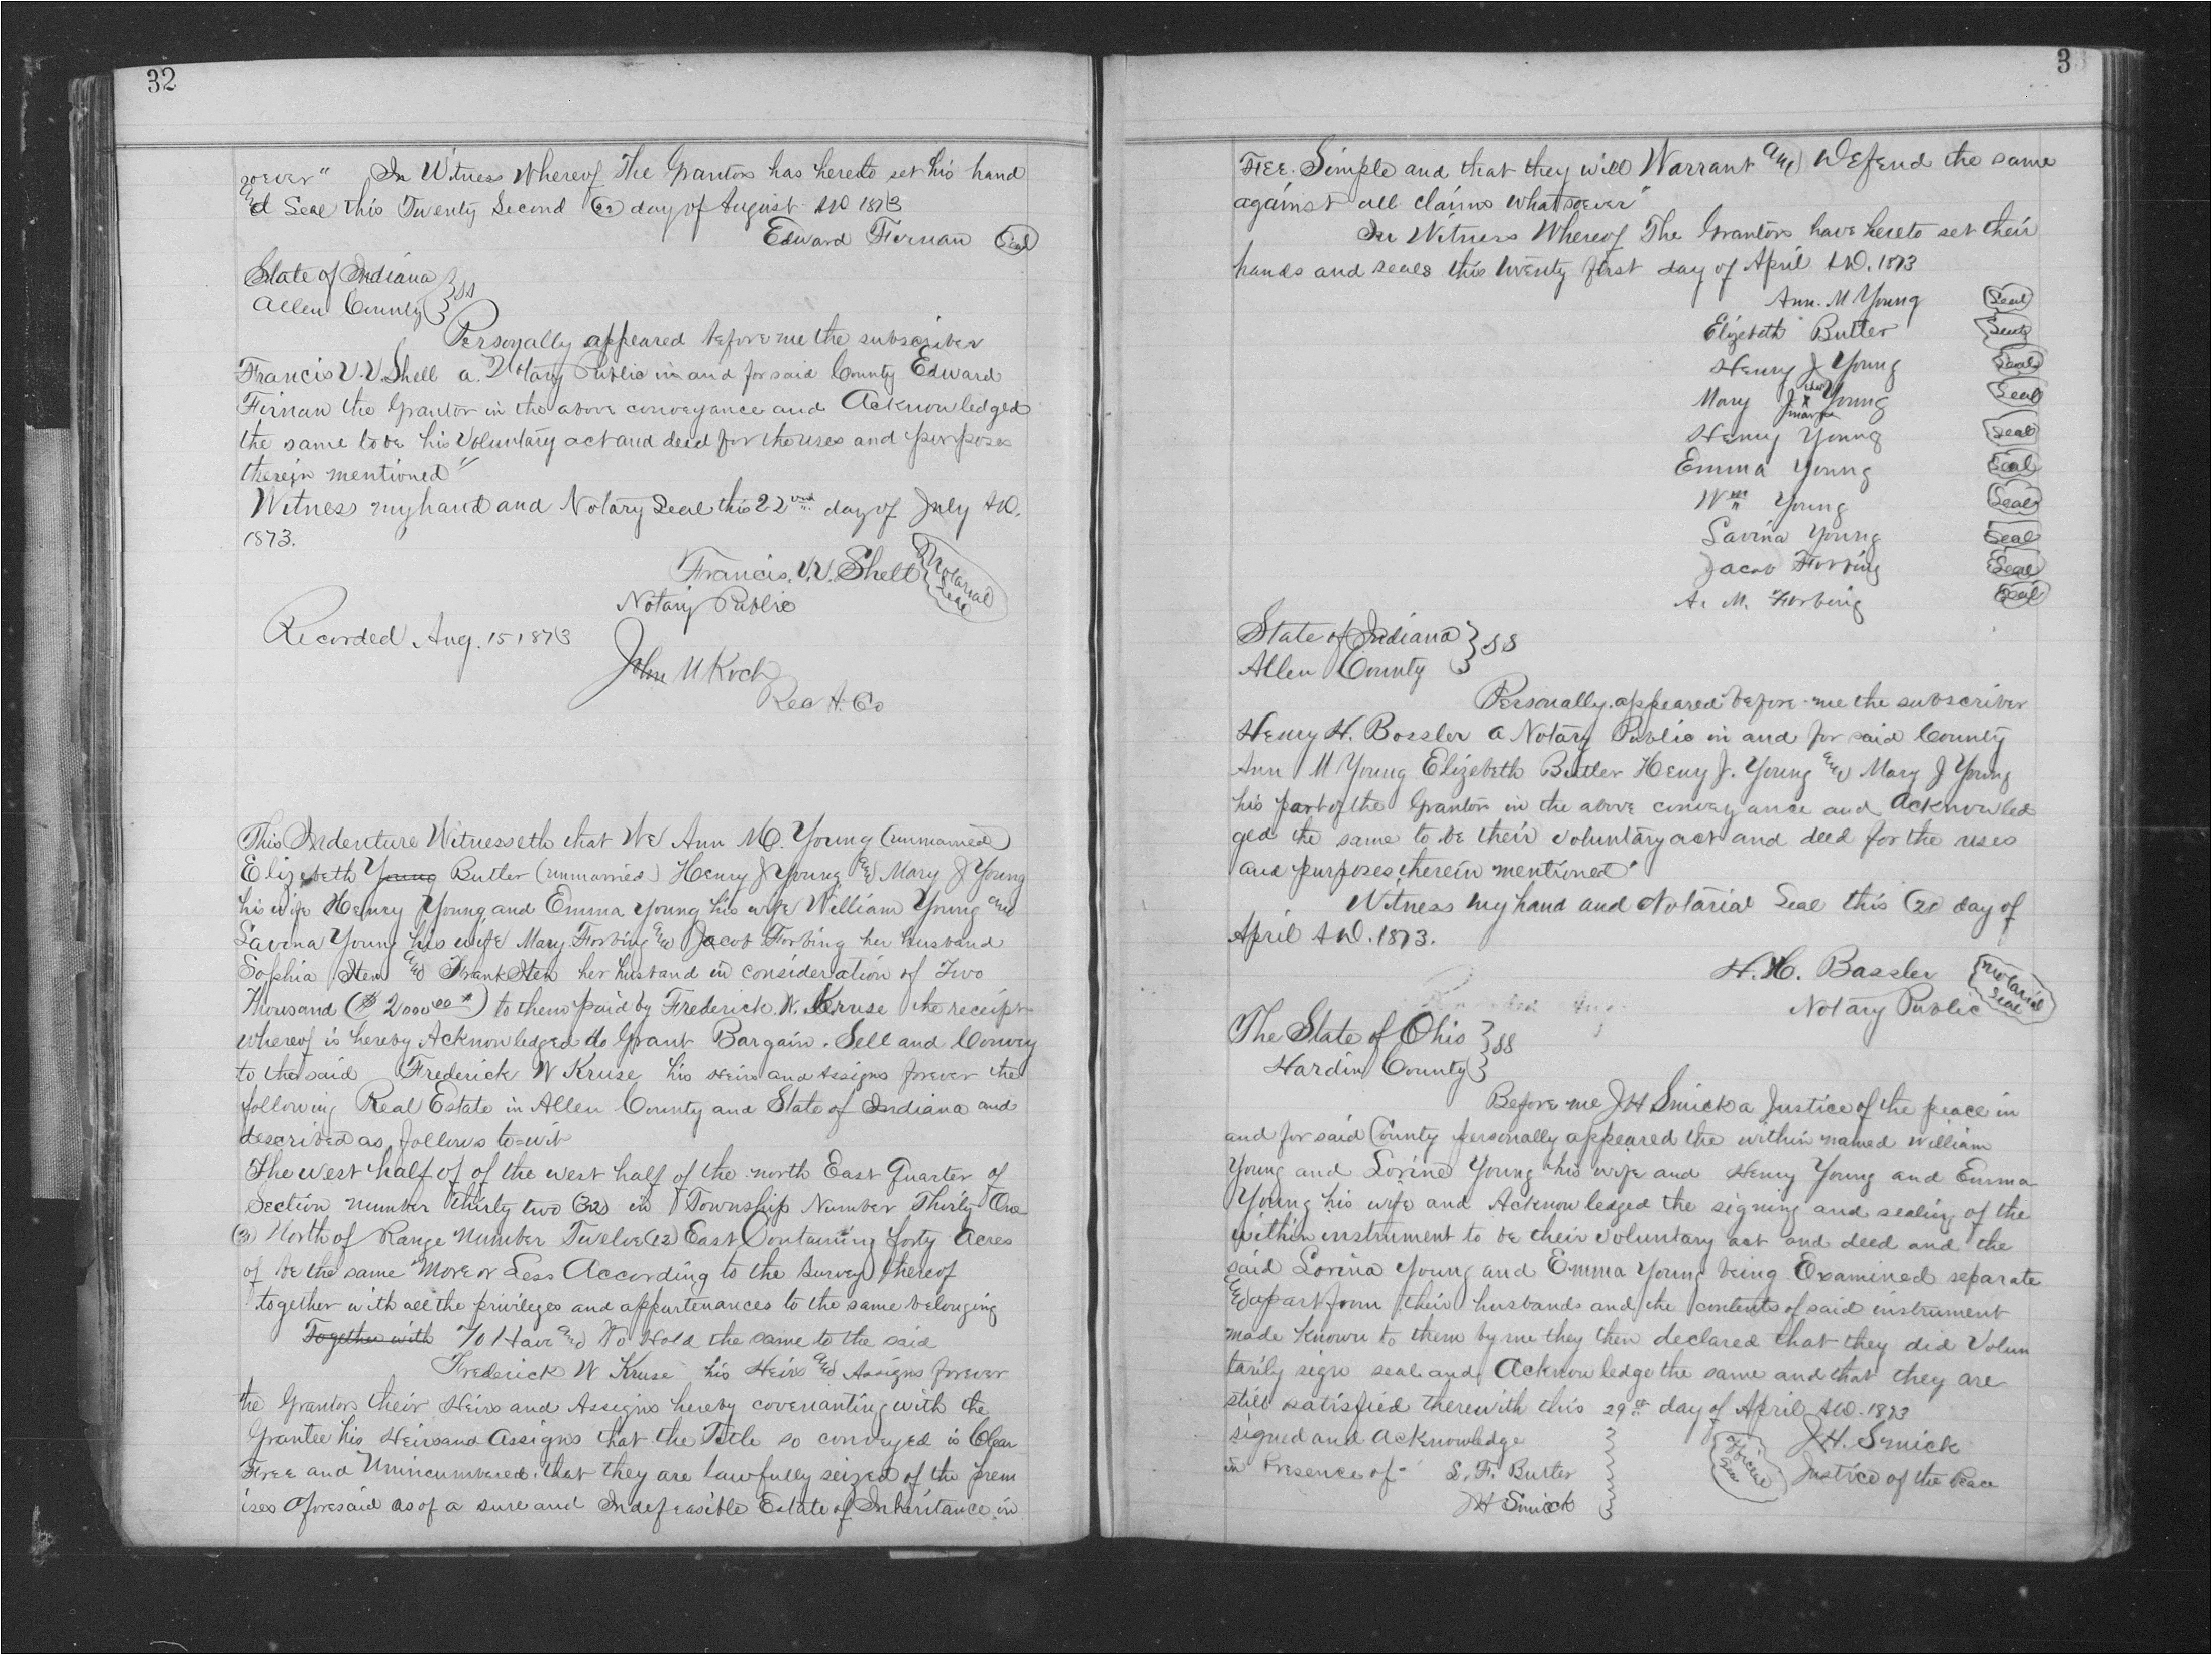 32
soever" In Witness Whereof The Grantor has hereto set his hand
and Seal this Twenty Second (22) day of August AD 1873
Edward Fernan Seal
State of Indiana } SS
Allen County }
Personally appeared before me the subscriber
Francis V. V. Shell a. Notary Public in and for said County Edward
Firnan the Grantor in the above conveyance and Acknowledged
the same to be his Voluntary act and deed for the uses and purposes
therein mentioned"
Witness my hand and Notary Seal this 22nd day of July AD.
1873.
Francis. V. V. Shell Notarial Seal
Notary Public
Recorded Aug. 15 1873
John M Koch
Rec A. Co
This Indenture Witnesseth that We Ann M. Young (unmarried)
Elizebeth Young Butler (unmarried) Henry J Young and Mary J Young
his wife Henry Young and Emma Young his wife William Young and
Lavina Young his wife Mary Forbing and Jacob Forbing her husband
Sophia Iten and Frank Iten her husband in consideration of Two
Thousand ($ 2000 00) to them paid by Frederick. W. Kruse the receipt
whereof is hereby Acknowledged do Grant Bargain. Sell and Convey
to the said Frederick W Kruse his Heirs and Assigns forever the
following Real Estate in Allen County and State of Indiana and
described as, follows to=wit
The west half of of the west half of the north East Quarter of
Section number thirty two (32) in Township Number Thirty One
(31) North of Range Number Twelve (12) East Containing forty Acres
of be the same More or Less According to the Survey thereof
together with all the privileges and appurtenances to the same belonging
Together with To Have and To Hold the same to the said
Frederick W Kruse his Heirs and Assigns forever
the Grantors their Heirs and Assigns hereby covenanting with the
Grantee his Heirs and Assigns that the Title so conveyed is Clear
Free and Unincumbered. that they are lawfully seized of the prem
ises aforesaid as of a sure and Indefeasible Estate of Inheritance in
3
Fee. Simple and that they will Warrant and Defend the same
against all claims whatsoever"
In Witness Whereof The Grantors have hereto set their
hands and seals this twenty first day of April AD. 1873
Ann. M Young Seal
Elizebeth Butler Seal
Henry J Young Seal
Mary J her x mark Young Seal
Henry Young Seal
Emma Young Seal
Wm Young Seal
Lavina Young Seal
Jacob Forbing Seal
A. M. Forbing Seal
State of Indiana } SS
Allen County }
Personally appeared before me the subscriber
Henry H. Bossler a Notary Public in and for said County
Ann M Young Elizebeth Butler Heny J. Young and Mary J Young
his part of the Grantors in the above conveyance and Acknowled
ged the same to be their voluntary act and deed for the uses
and purposes, therein mentioned"
Witness my hand and Notarial Seal this (21) day of
April AD. 1873.
H. H. Bassler Notarial Seal
Notary Public
The State of Ohio } SS
Hardin County }
Before me J H Smick a Justice of the peace in
and for said County personally appeared the within named William
Young and Lorine Young his wife and Henry Young and Emma
Young his wife and Acknowledged the signing and sealing of the
within instrument to be their voluntary act and deed and the
said Lorina Young and Emma Young being Examined separate
and apart from their husbands and the contents of said instrument
made known to them by me they then declared that they did Volun
tarily sign seal and Acknowledge the same and that they are
still satisfied therewith this 29th day of April AD. 1873
signed and Acknowledge } J H. Smick
in Presence of- S. F. Butler } Official Seal Justice of the Peace
J H Smick }